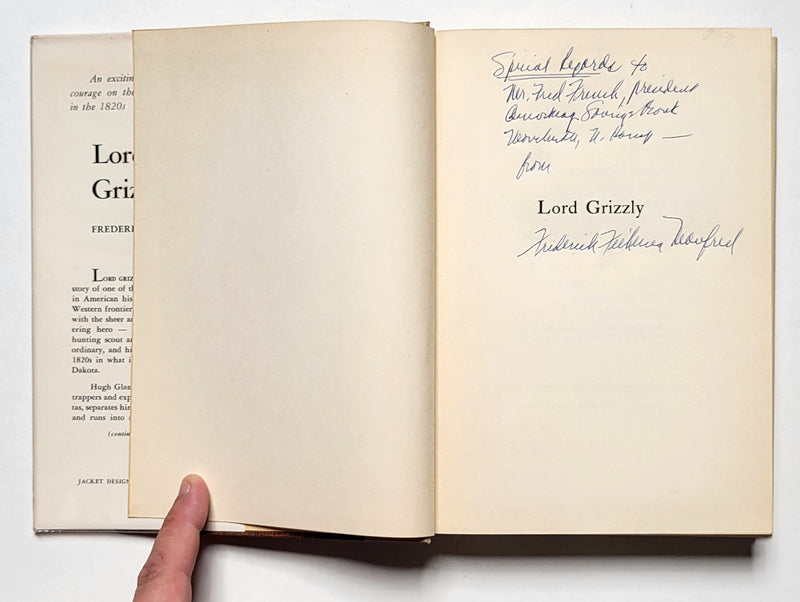 An excitin
courage on the
in the 1820s
Lor
Griz
FREDERI
LORD GRIZ
story of one of th
in American his
Western frontier
with the sheer a
ering hero —
hunting scout a
ordinary, and hi
1820s in what i
Dakota.
Hugh Glas
trappers and exp
tas, separates him
and runs into
(contin
JACKET DESIGN
Special Regards to
Mr. Fred French, President
Amoskeag Savings Bank
Manchester, N. Hamp —
from
Lord Grizzly
Frederick Feikema Manfred